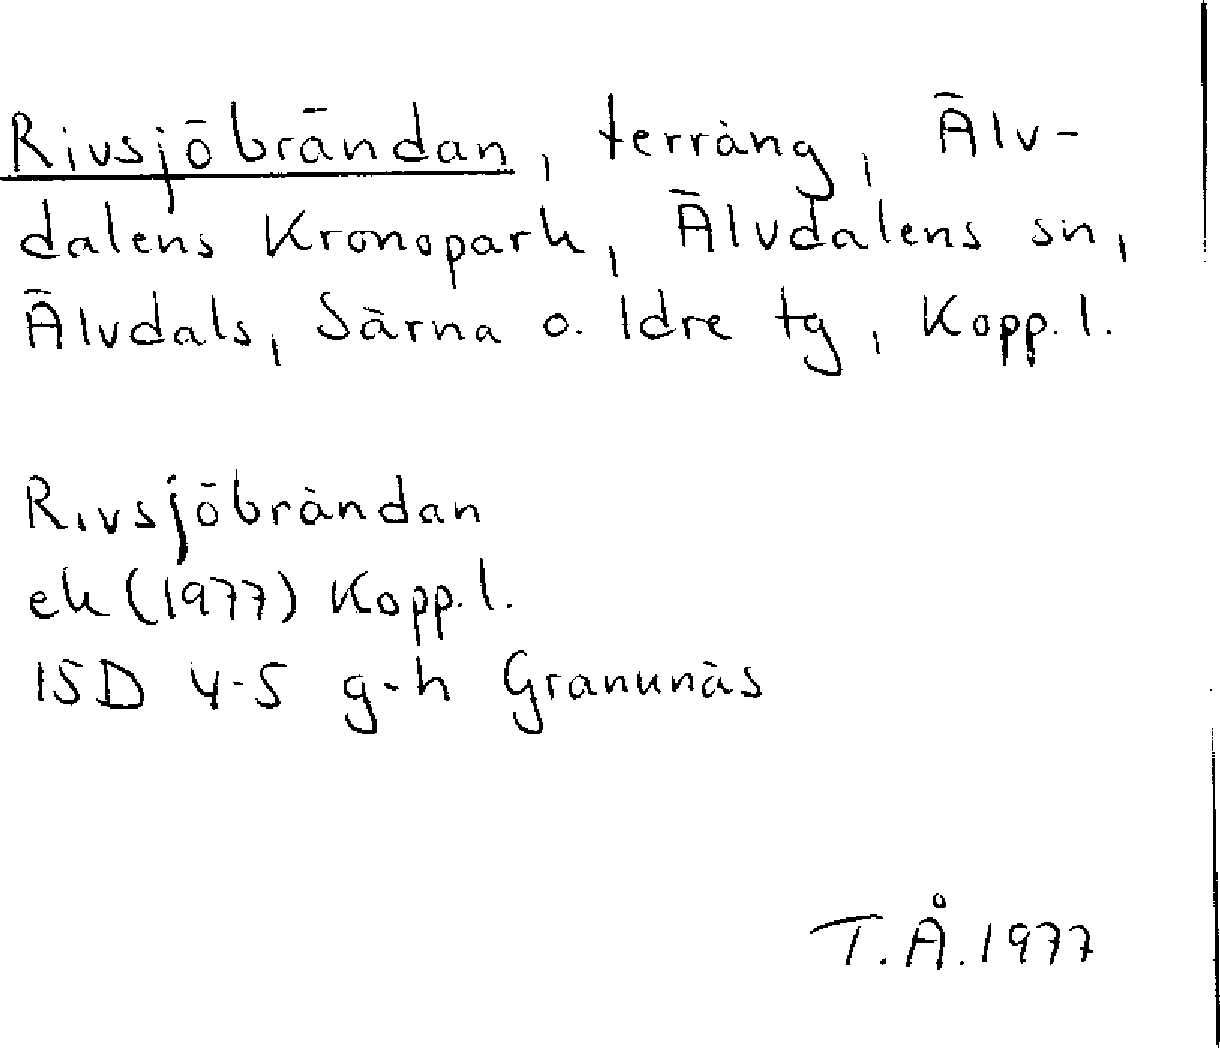 Rivsjöbrändan, terräng, Älv-
dalens Kronopark, Älvdalens sn,
Älvdals, Särna o. Idre tg, Kopp.l.
Rivsjöbrändan
ek (1977) Kopp.l.
15D 4-5 g-h Granunäs
T.Å.1977